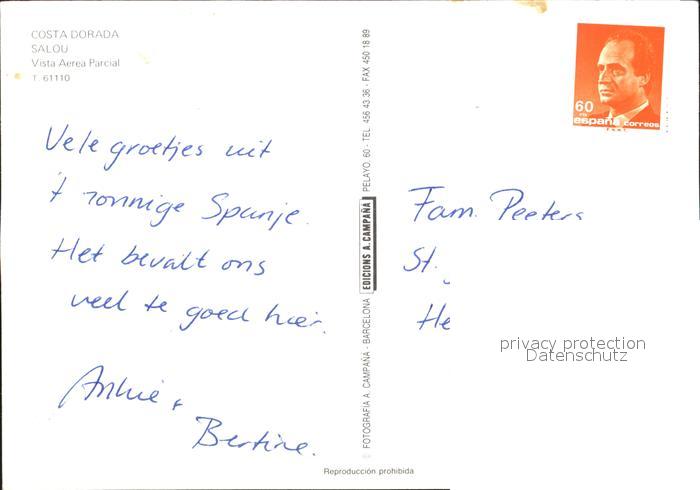 COSTA DORADA
SALOU
Vista Aerea Parcial
T. 61110
Vele groetjes uit
't zonnige Spanje.
Het bevalt ons
veel te goed hier.
Bertine.
© FOTOGRAFIA A. CAMPAÑA - BARCELONA EDICIONS A. CAMPAÑA PELAYO, 60 - TEL. 456 43 36 - FAX 450 18 89
Reproducción prohibida
60
españa correos
Fam. Peeters
St.
He
privacy protection
Datenschutz